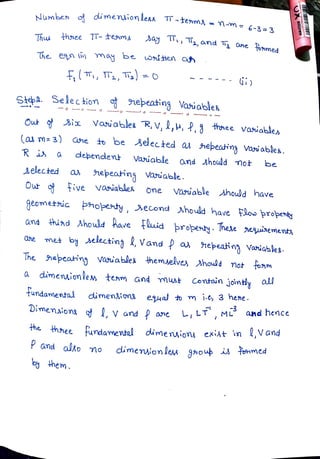 Number of dimensionless π-terms = n-m = 6-3 = 3
Thus three π-terms say π₁, π₂, and π₃ are formed
The eqn (i) may be written as
f₁ (π₁, π₂, π₃) = 0 ------ (ii)
Step2. Selection of repeating Variables
Out of six variables R, V, l, μ, ρ, g three variables
(as m=3) are to be selected as repeating variables.
R is a dependent variable and should not be
selected as repeating variable.
Out of five variables one variable should have
geometric property, second should have flow property
and third should have fluid property. These requirements
are met by selecting l, V and ρ as repeating variables.
The repeating variables themselves should not form
a dimensionless term and must contain jointly all
fundamental dimensions equal to m i.e, 3 here.
Dimensions of l, V and ρ are L, LT⁻¹, ML⁻³ and hence
the three fundamental dimensions exist in l, V and
ρ and also no dimensionless group is formed
by them.